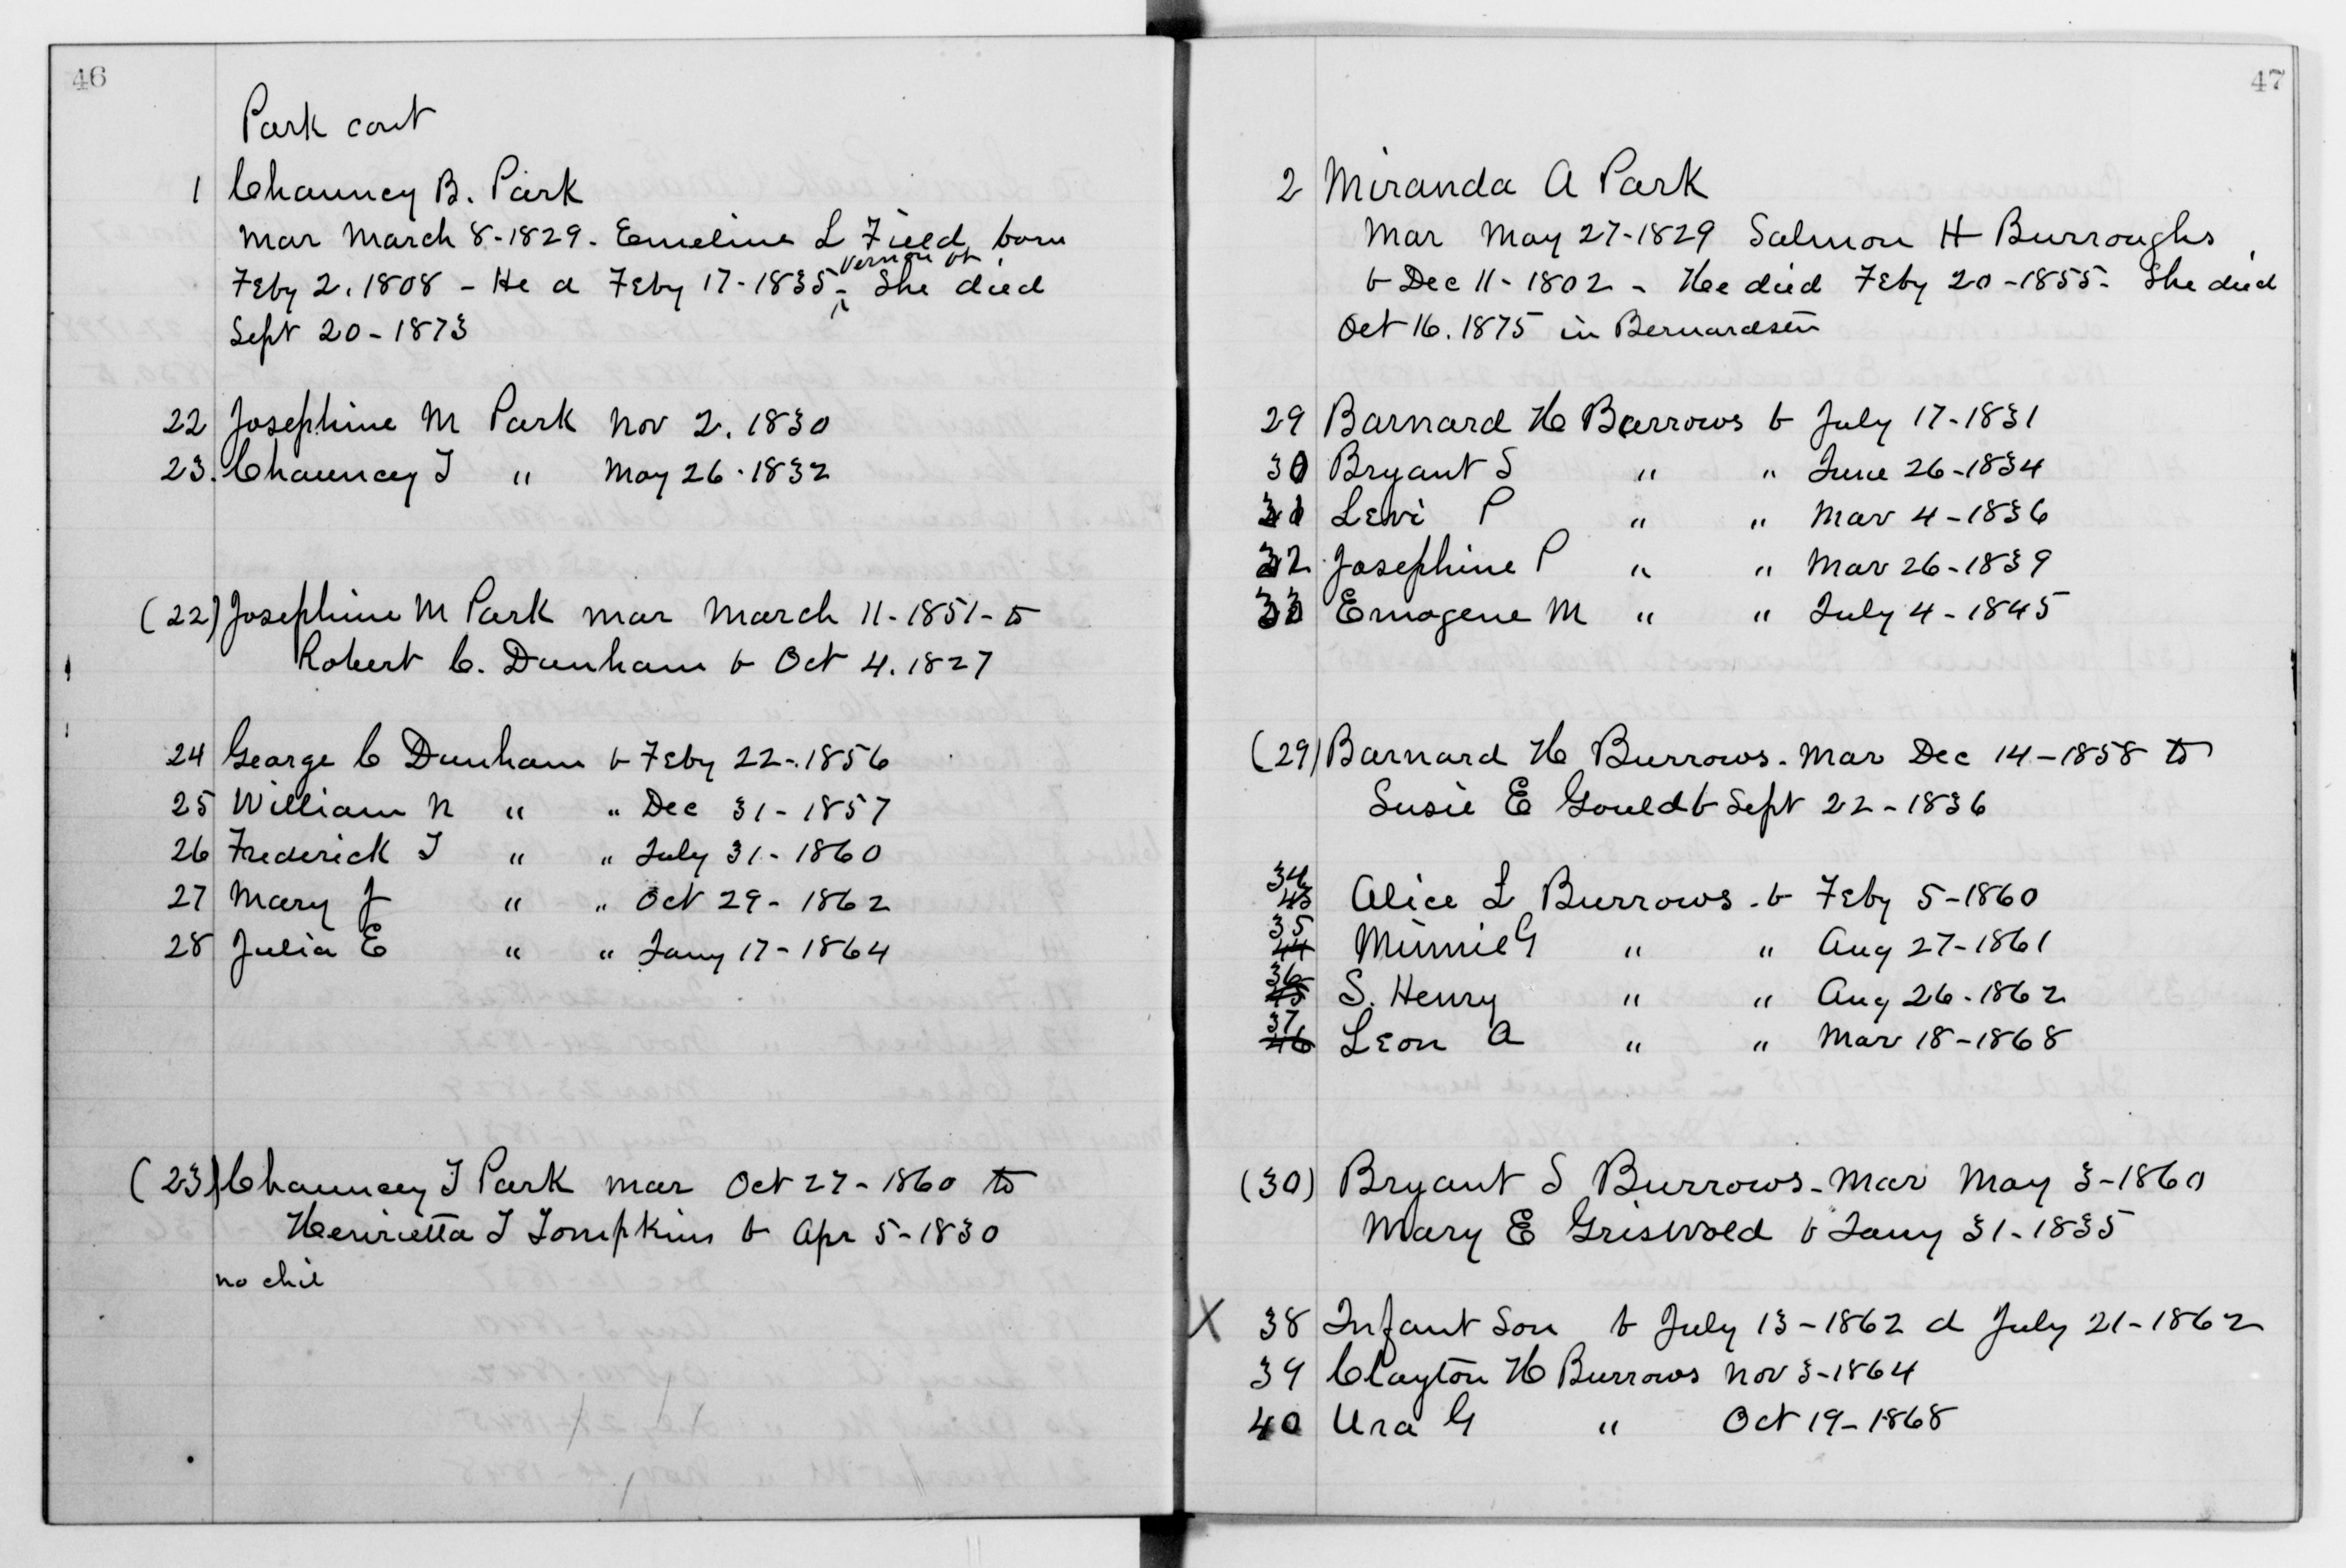 46
Park cont
1 Chauncey B. Park
Mar March 8-1829. Emeline L Field, born
Feby 2. 1808 - He d Feby 17-1835 - She died
Vernon Vt
Sept 20-1873
22 Josephine M Park Nov 2. 1830
23. Chauncey T " May 26-1832
(22) Josephine M Park mar March 11-1851-to
Robert C. Dunham b Oct 4. 1827
24 George C Dunham b Feby 22-1856
25 William N " " Dec 31-1857
26 Frederick T " " July 31-1860
27 Mary J " " Oct 29-1862
28 Julia E " " Jany 17-1864
(23) Chauncey T Park mar Oct 27-1860 to
Henrietta T Tompkins b Apr 5-1830
no chil
47
2 Miranda A Park
Mar May 27-1829 Salmon H Burroughs
b Dec 11-1802 - He died Feby 20-1855- She died
Oct 16. 1875 in Bernardston
29 Barnard H Burrows b July 17-1831
30 Bryant S " " June 26-1834
31 Levi P " " Mar 4-1836
32 Josephine P " " Mar 26-1839
33 Emogene M " " July 4-1845
(29) Barnard H Burrows. Mar Dec 14-1858 to
Susie E Gould b Sept 22-1836
34
43 Alice L Burrows. b Feby 5-1860
35
44 Minnie G " " Aug 27-1861
36
45 S. Henry " " Aug 26-1862
37
46 Leon A " " Mar 18-1868
(30) Bryant S Burrows-Mar May 3-1860
Mary E Griswold b Jany 31-1835
X 38 Infant Son b July 13-1862 d July 21-1862
39 Clayton H Burrows Nov 3-1864
40 Ura G " Oct 19-1868